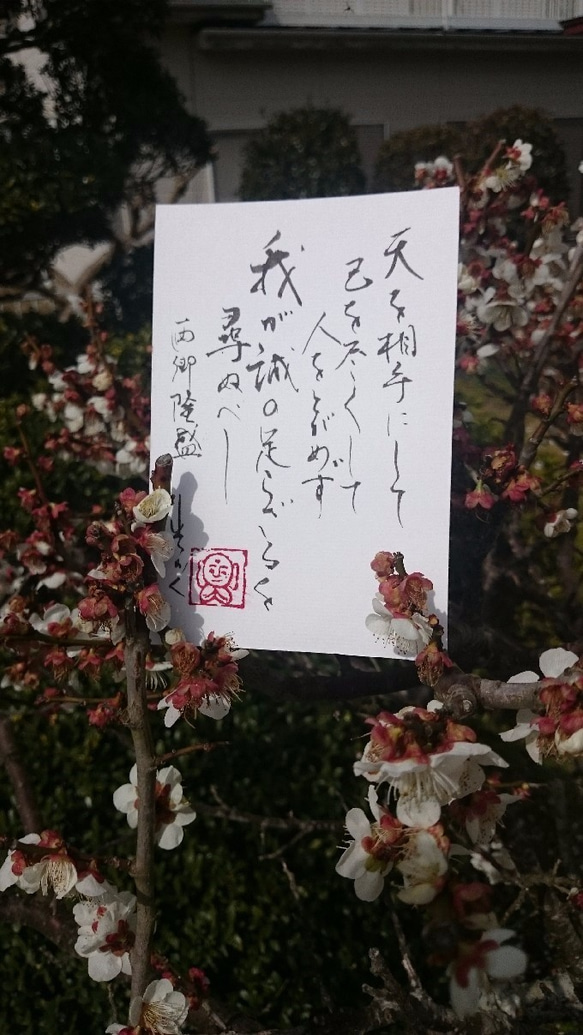 天を相手にして
己を尽くして
人をとがめず
我が誠の足らざるを
尋ぬべし
西郷隆盛